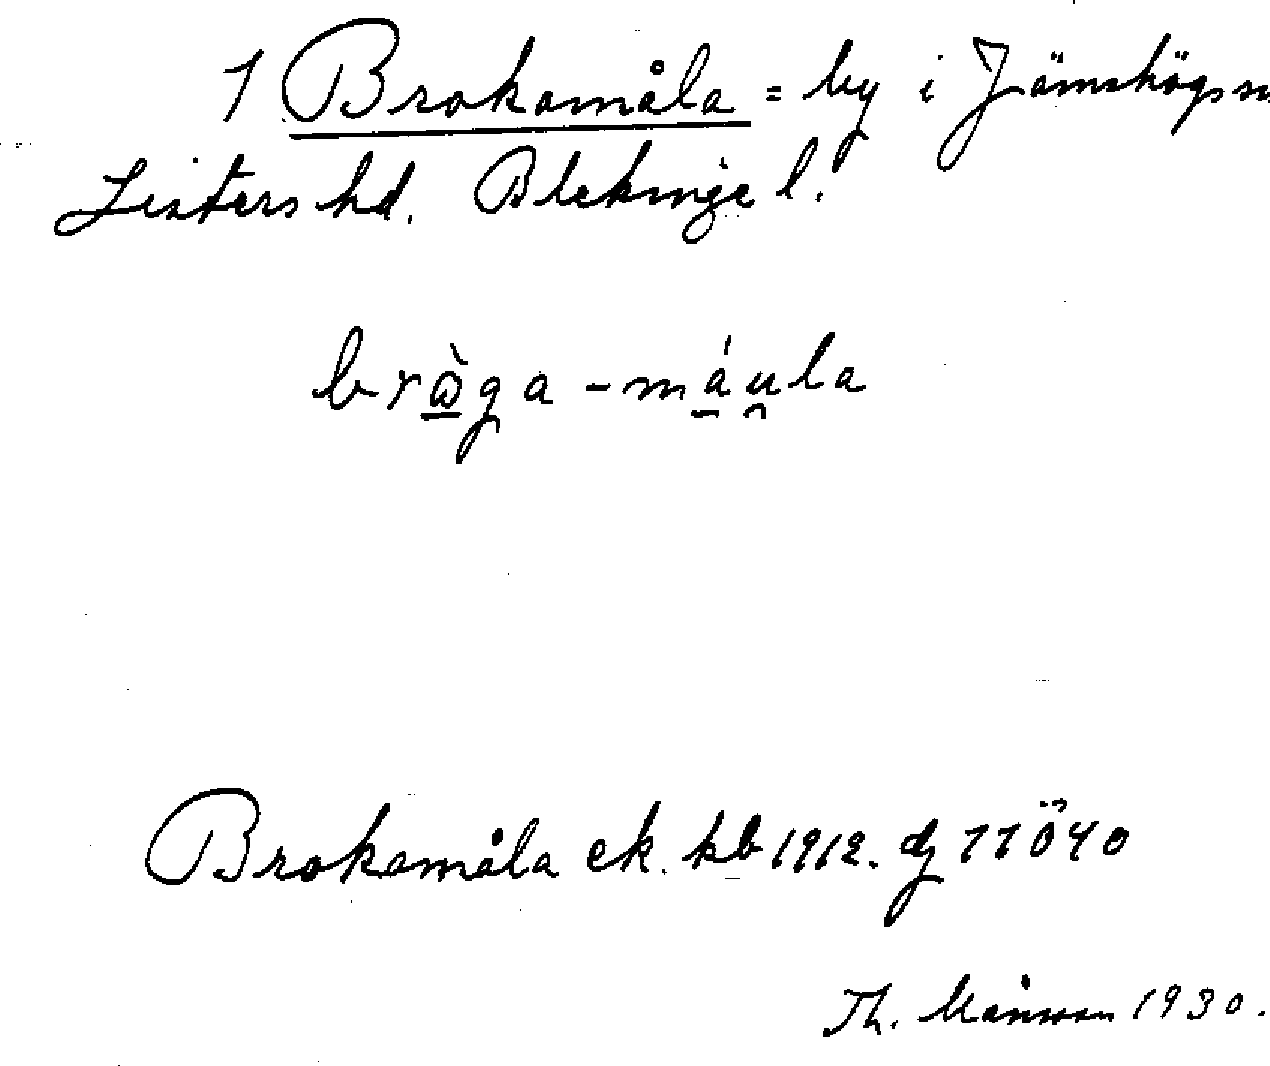 1 Brokamåla = by i Jämshögs sn
Listers hd. Blekinge l.
bròga - máula
Brokamåla ek. kb 1912. dj 11Ö40
Th. Månsson 1930.